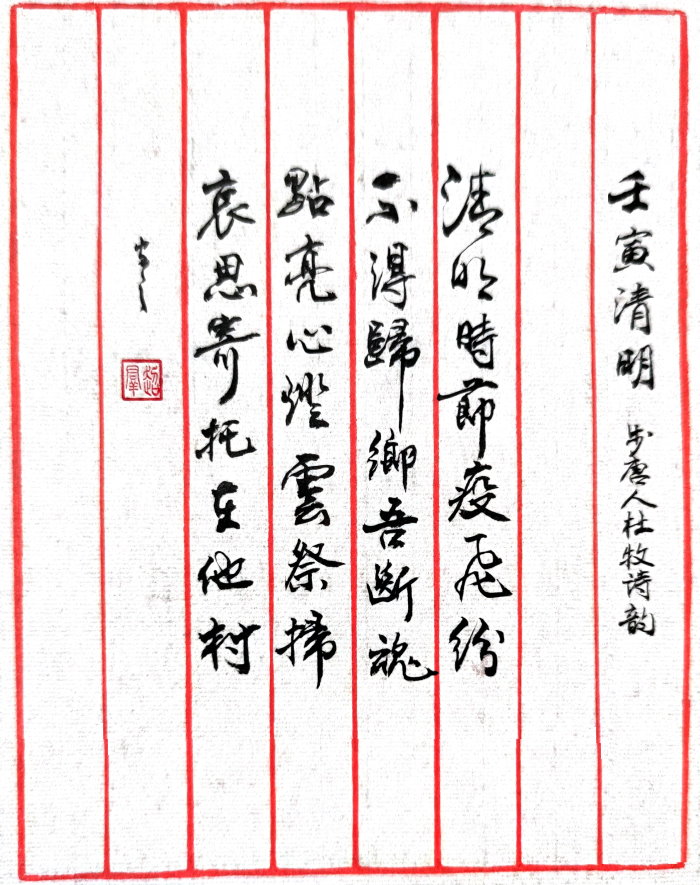 壬寅清明 步唐人杜牧诗韵
清明時節疫飛紛
不得歸鄉吾斷魂
點亮心燈雲祭掃
哀思寄托在他村